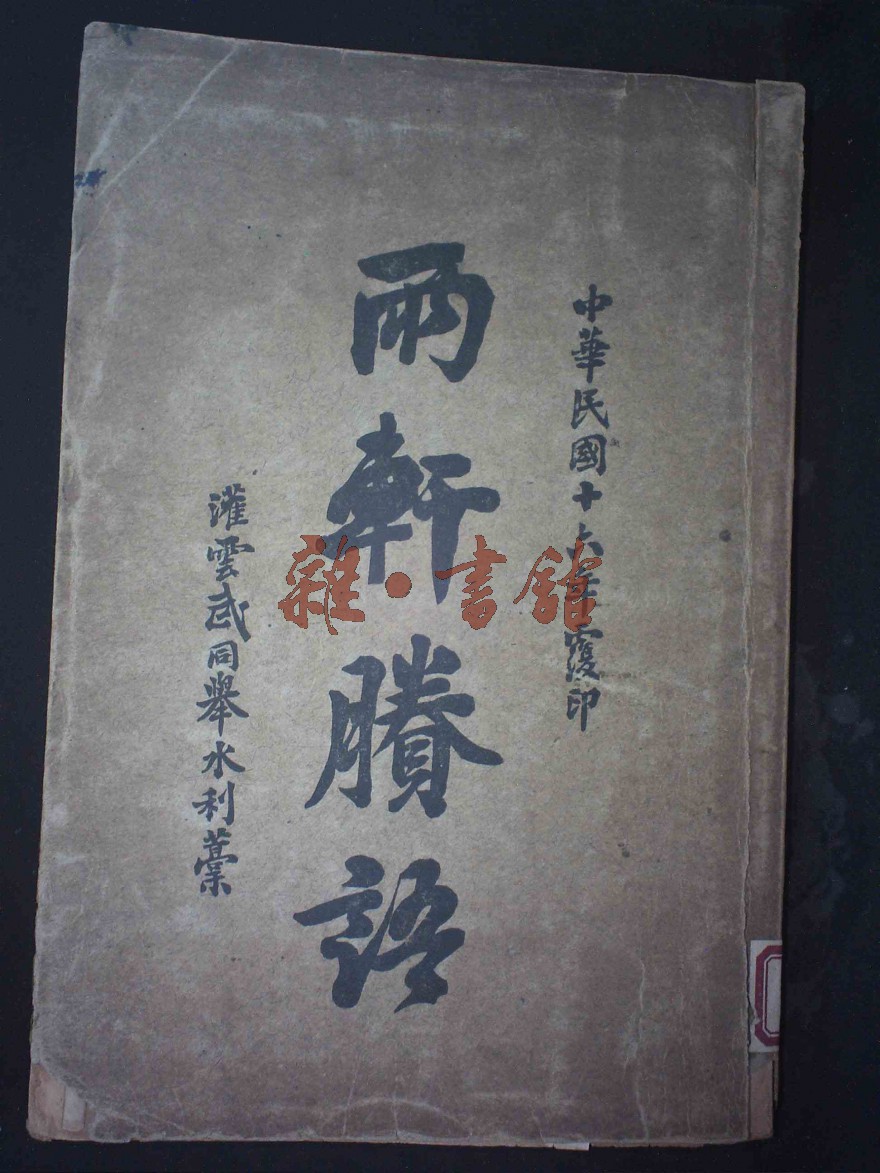 中華民國十六年覆印
兩軒賸語
灌雲武同舉水利藁
雜·書館